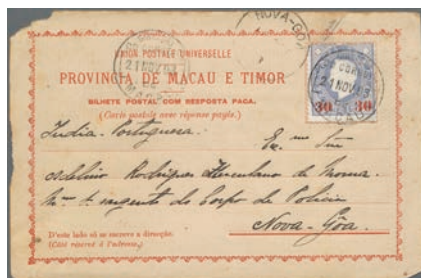 UNION POSTALE UNIVERSELLE
PROVINCIA DE MACAU E TIMOR
BILHETE POSTAL COM RESPOSTA PAGA.
(Carte postale avec réponse payée.)
NOVA-GOA
21 NOV 03
MACAU
30 30
21 NOV 03
India Portugueza.
Exmo Snr
Adelino Rodrigues Herculano de Moura.
sargento do Corpo de Policia
Nova-Gôa.
D'este lado só se escreve a direcção.
(Côté réservé à l'adresse.)